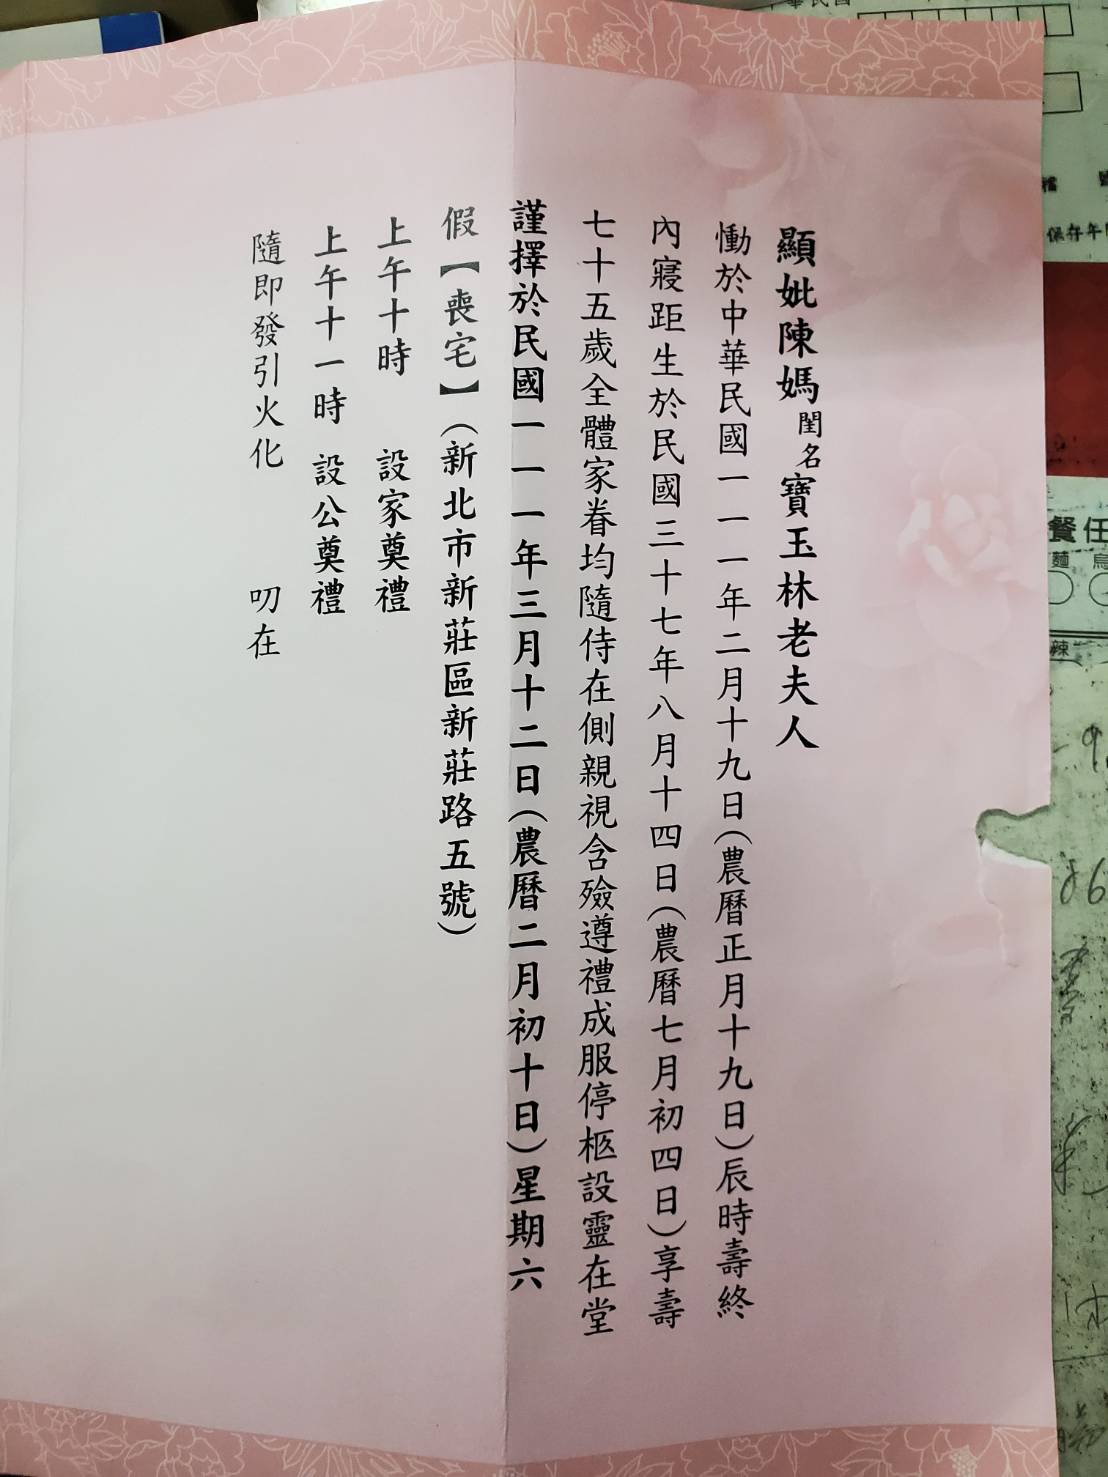 顯妣陳媽閨名寶玉林老夫人
慟於中華民國一一一年二月十九日(農曆正月十九日)辰時壽終
內寢距生於民國三十七年八月十四日(農曆七月初四日)享壽
七十五歲全體家眷均隨侍在側親視含殮遵禮成服停柩設靈在堂
謹擇於民國一一一年三月十二日(農曆二月初十日)星期六
假【喪宅】(新北市新莊區新莊路五號)
上午十時 設家奠禮
上午十一時 設公奠禮
隨即發引火化 叨在
保存年
餐任
麵
辣